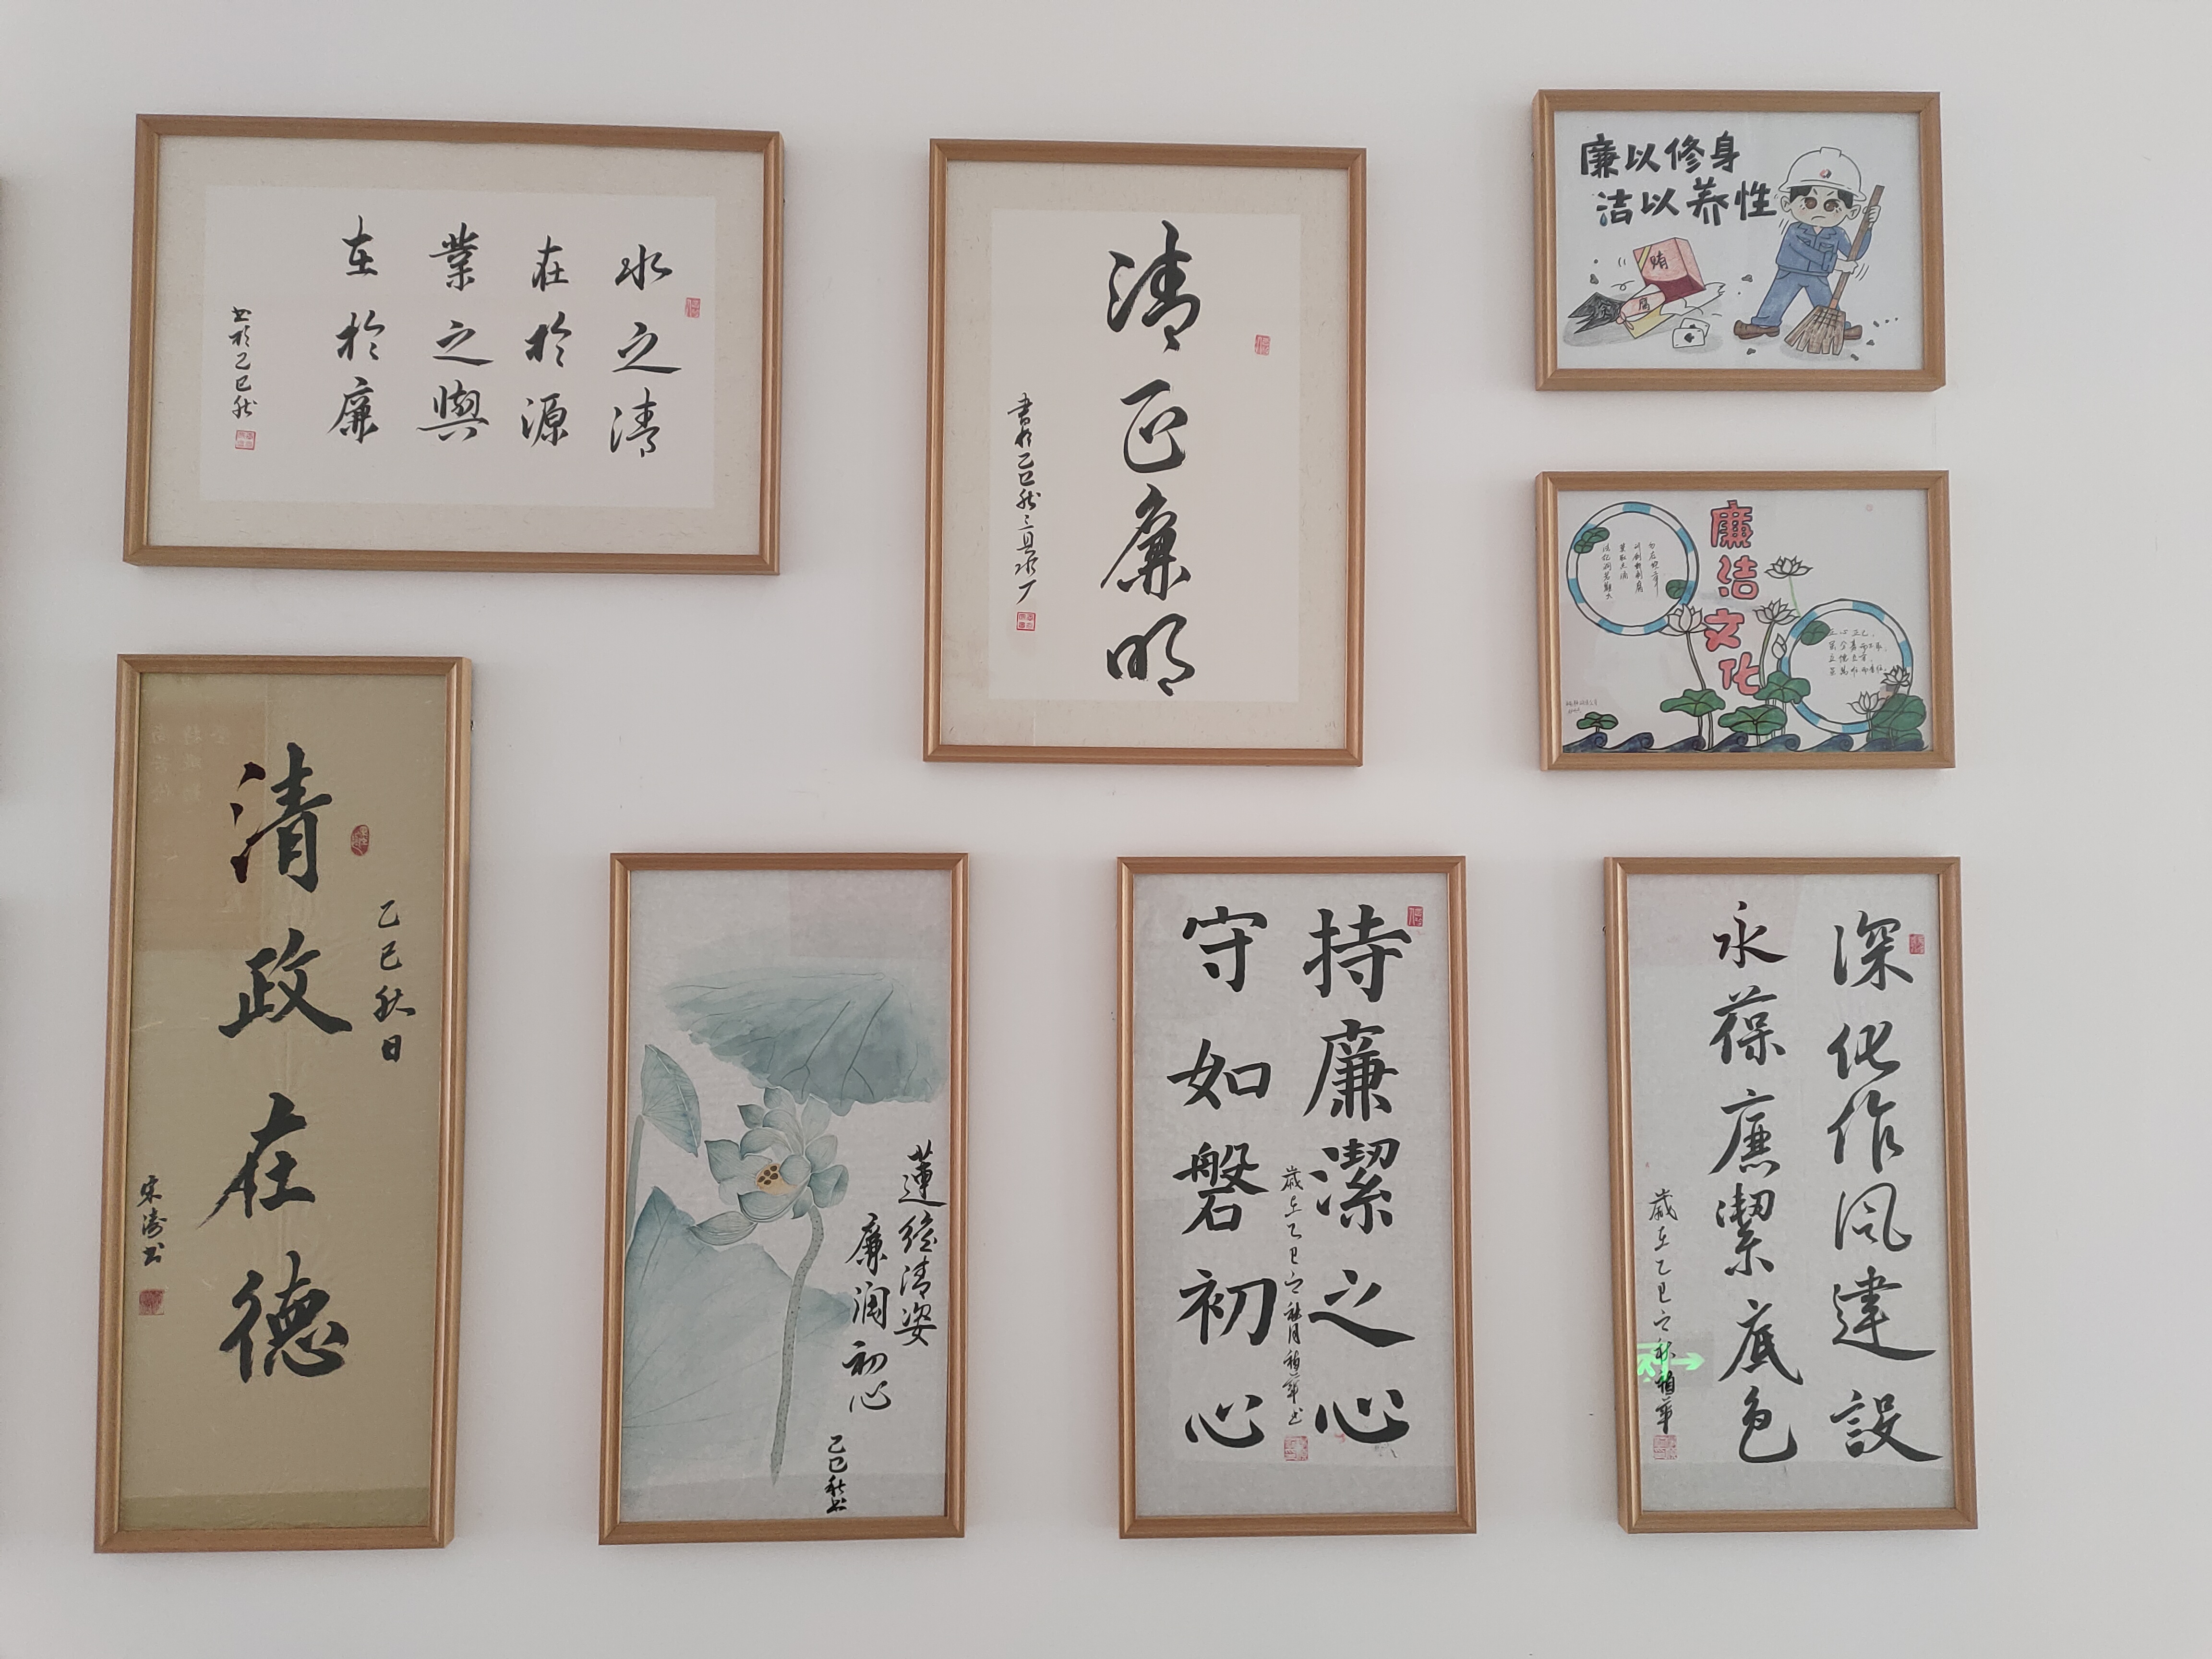 水之清
在於源
業之興
在於廉
書於乙巳秋
清正廉明
書於乙巳秋
廉以修身
洁以养性
賄
腐
廉洁文化
正心正己,
立德立言,
清政在德
乙巳秋日
宋濤書
蓮繪清姿
廉润初心
乙巳秋書
持廉潔之心
守如磐初心
歲在乙巳
深化作風建設
永葆廉潔底色
歲在乙巳